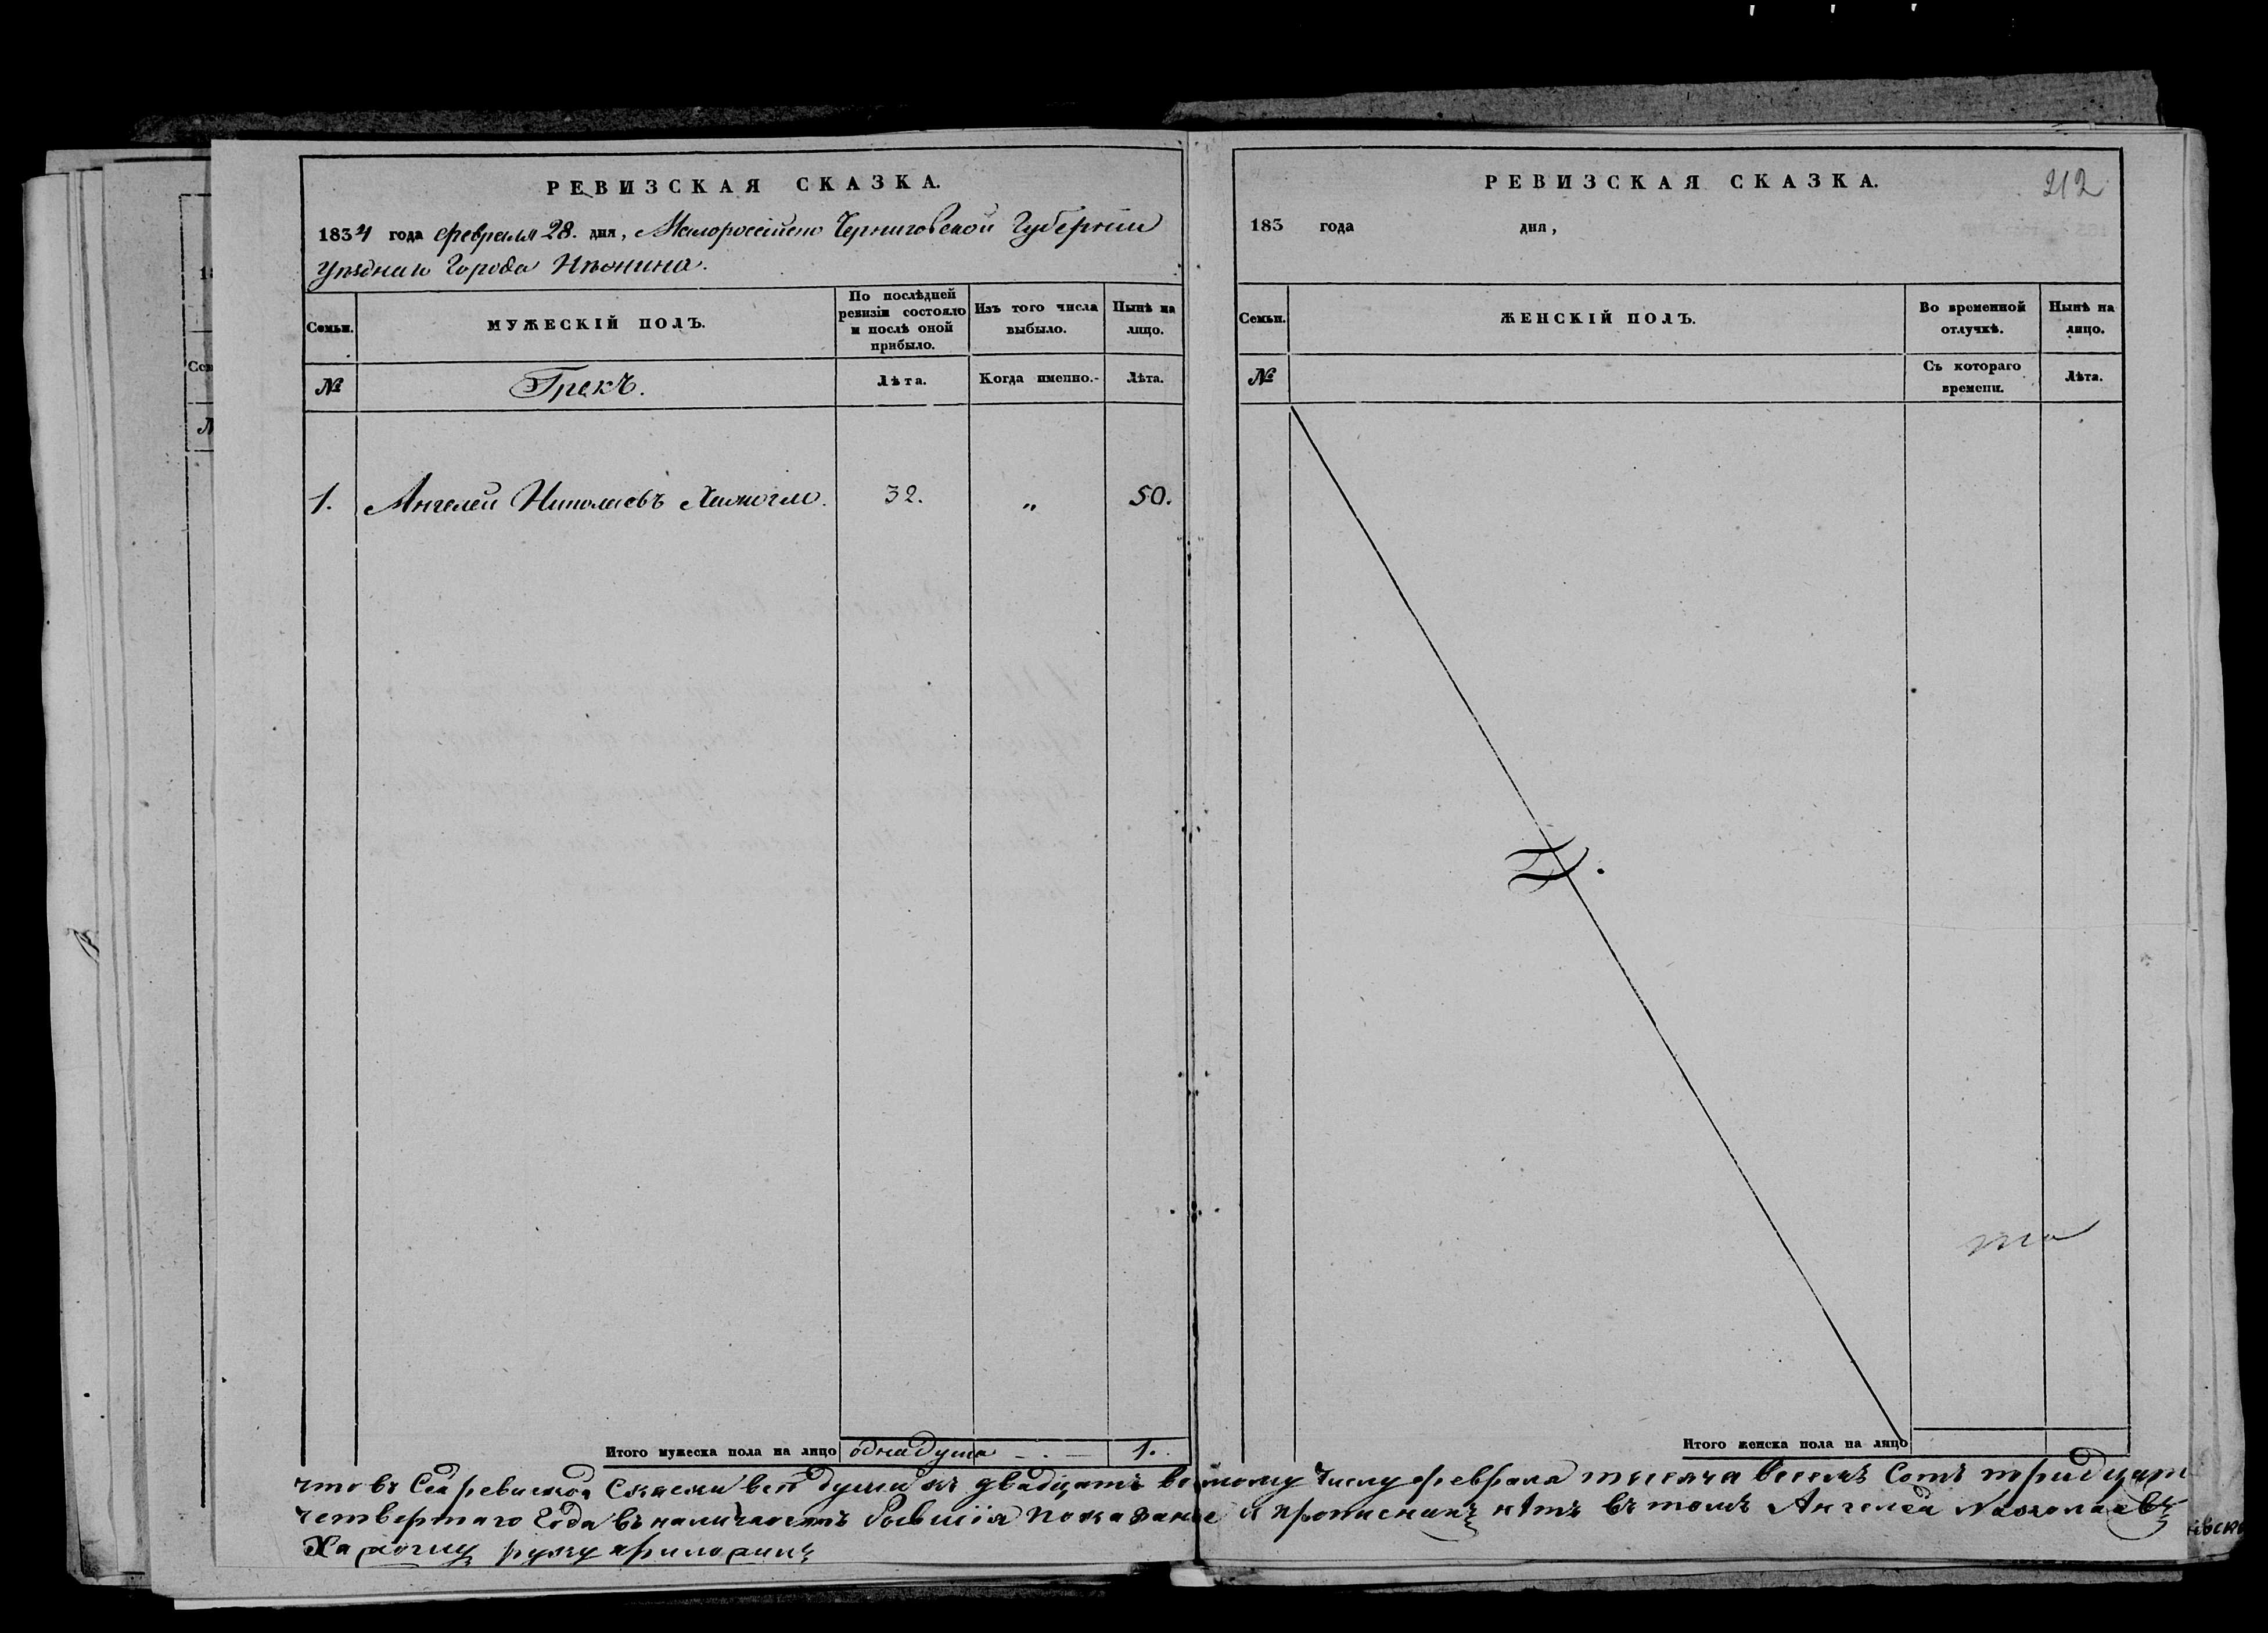 РЕВИЗСКАЯ СКАЗКА.
1834 года февраля 28. дня, Малороссійско Черниговской Губерніи
Уѣзднаго Города Нѣжина.
Семьи.
МУЖЕСКІЙ ПОЛЪ.
По послѣдней ревизіи состояло и послѣ оной прибыло.
Изъ того числа выбыло.
Нынѣ на лицо.
№
Грекъ.
Лѣта.
Когда именно.
Лѣта.
1. Ангелей Николаевъ 32. „ 50.
Итого мужеска пола на лицо одна душа 1.
РЕВИЗСКАЯ СКАЗКА.
212
183 года дня,
Семьи.
ЖЕНСКІЙ ПОЛЪ.
Во временной отлучкѣ.
Нынѣ на лицо.
№
Съ котораго времени.
Лѣта.
Итого женска пола на лицо
что въ Сей ревиской Сказки всѣ души къ двадцать восмому Числу февраля тысяча восемъ Сотъ тридцать
четвертаго Года въ наличности бывшія показанные и прописныхъ нѣтъ въ томъ Ангелей Николаевъ
руку приложилъ